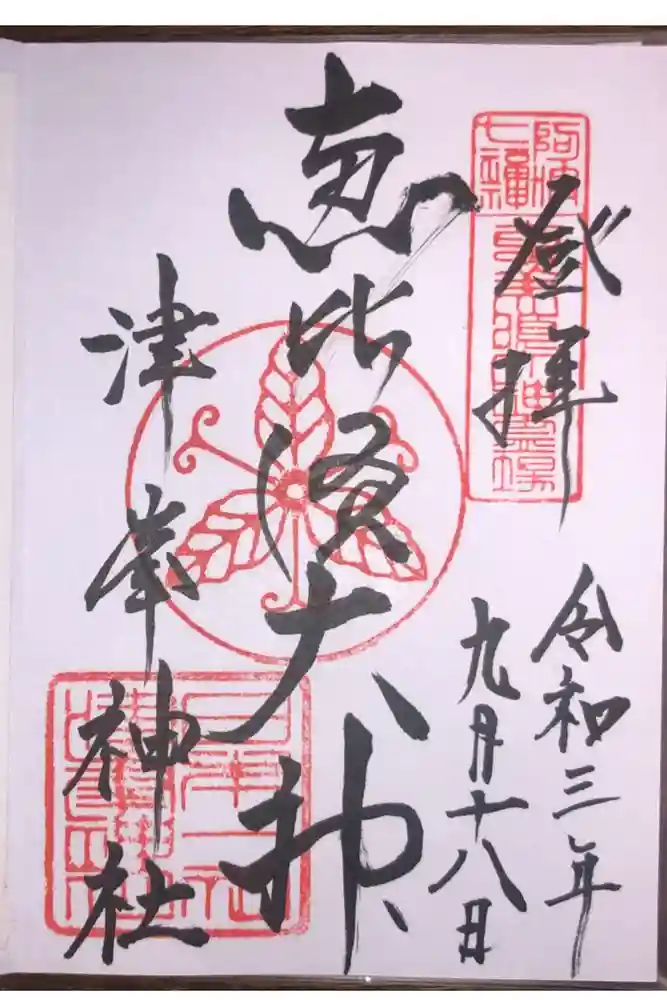 登拝
令和三年
九月十八日
恵比須大神
津峯神社
阿波
七福